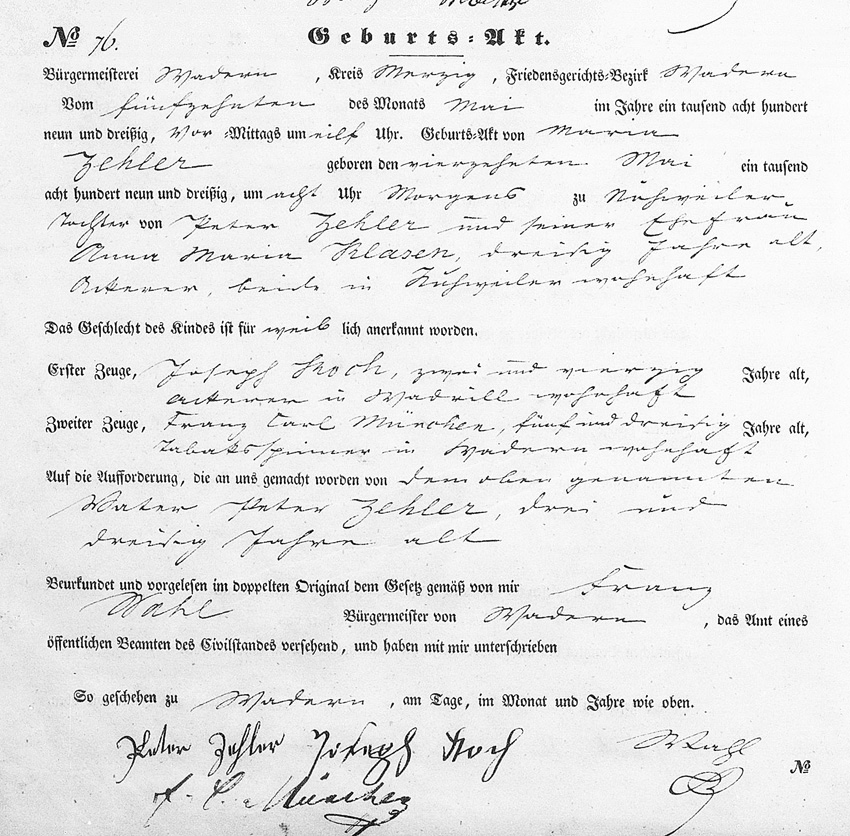 № 76. Geburts-Akt.
Bürgermeisterei Wadern, Kreis Merzig, Friedensgerichts-Bezirk Wadern
Vom fünfzehnten des Monats Mai im Jahre ein tausend acht hundert
neun und dreißig, Vor-Mittags um eilf Uhr. Geburts-Akt von Maria
Zehler geboren den vierzehnten Mai ein tausend
acht hundert neun und dreißig, um acht Uhr Morgens zu Nuhweiler
Tochter von Peter Zehler und seiner Ehefrau
Anna Maria Klasen, dreisig Jahre alt,
Ackerer, beide in Nuhweiler wohnhaft
Das Geschlecht des Kindes ist für weib lich anerkannt worden.
Erster Zeuge, Joseph Koch, zwei und vierzig Jahre alt,
Ackerer in Wadrill wohnhaft
Zweiter Zeuge, Franz Carl München, fünf und dreisig Jahre alt,
Tabaksspinner in Wadern wohnhaft
Auf die Aufforderung, die an uns gemacht worden von dem oben genannten
Vater Peter Zehler, drei und
dreisig Jahre alt
Beurkundet und vorgelesen im doppelten Original dem Gesetz gemäß von mir Franz
Wahl Bürgermeister von Wadern, das Amt eines
öffentlichen Beamten des Civilstandes versehend, und haben mit mir unterschrieben
So geschehen zu Wadern, am Tage, im Monat und Jahre wie oben.
Peter Zehler Joseph Koch Wahl
F. C. München
№